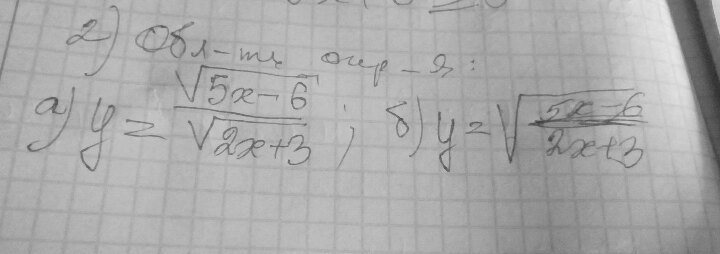 2) Обл-ть опр-я:
а) y = √(5x-6) / √(2x+3) ; б) y = √((5x-6) / (2x+3))